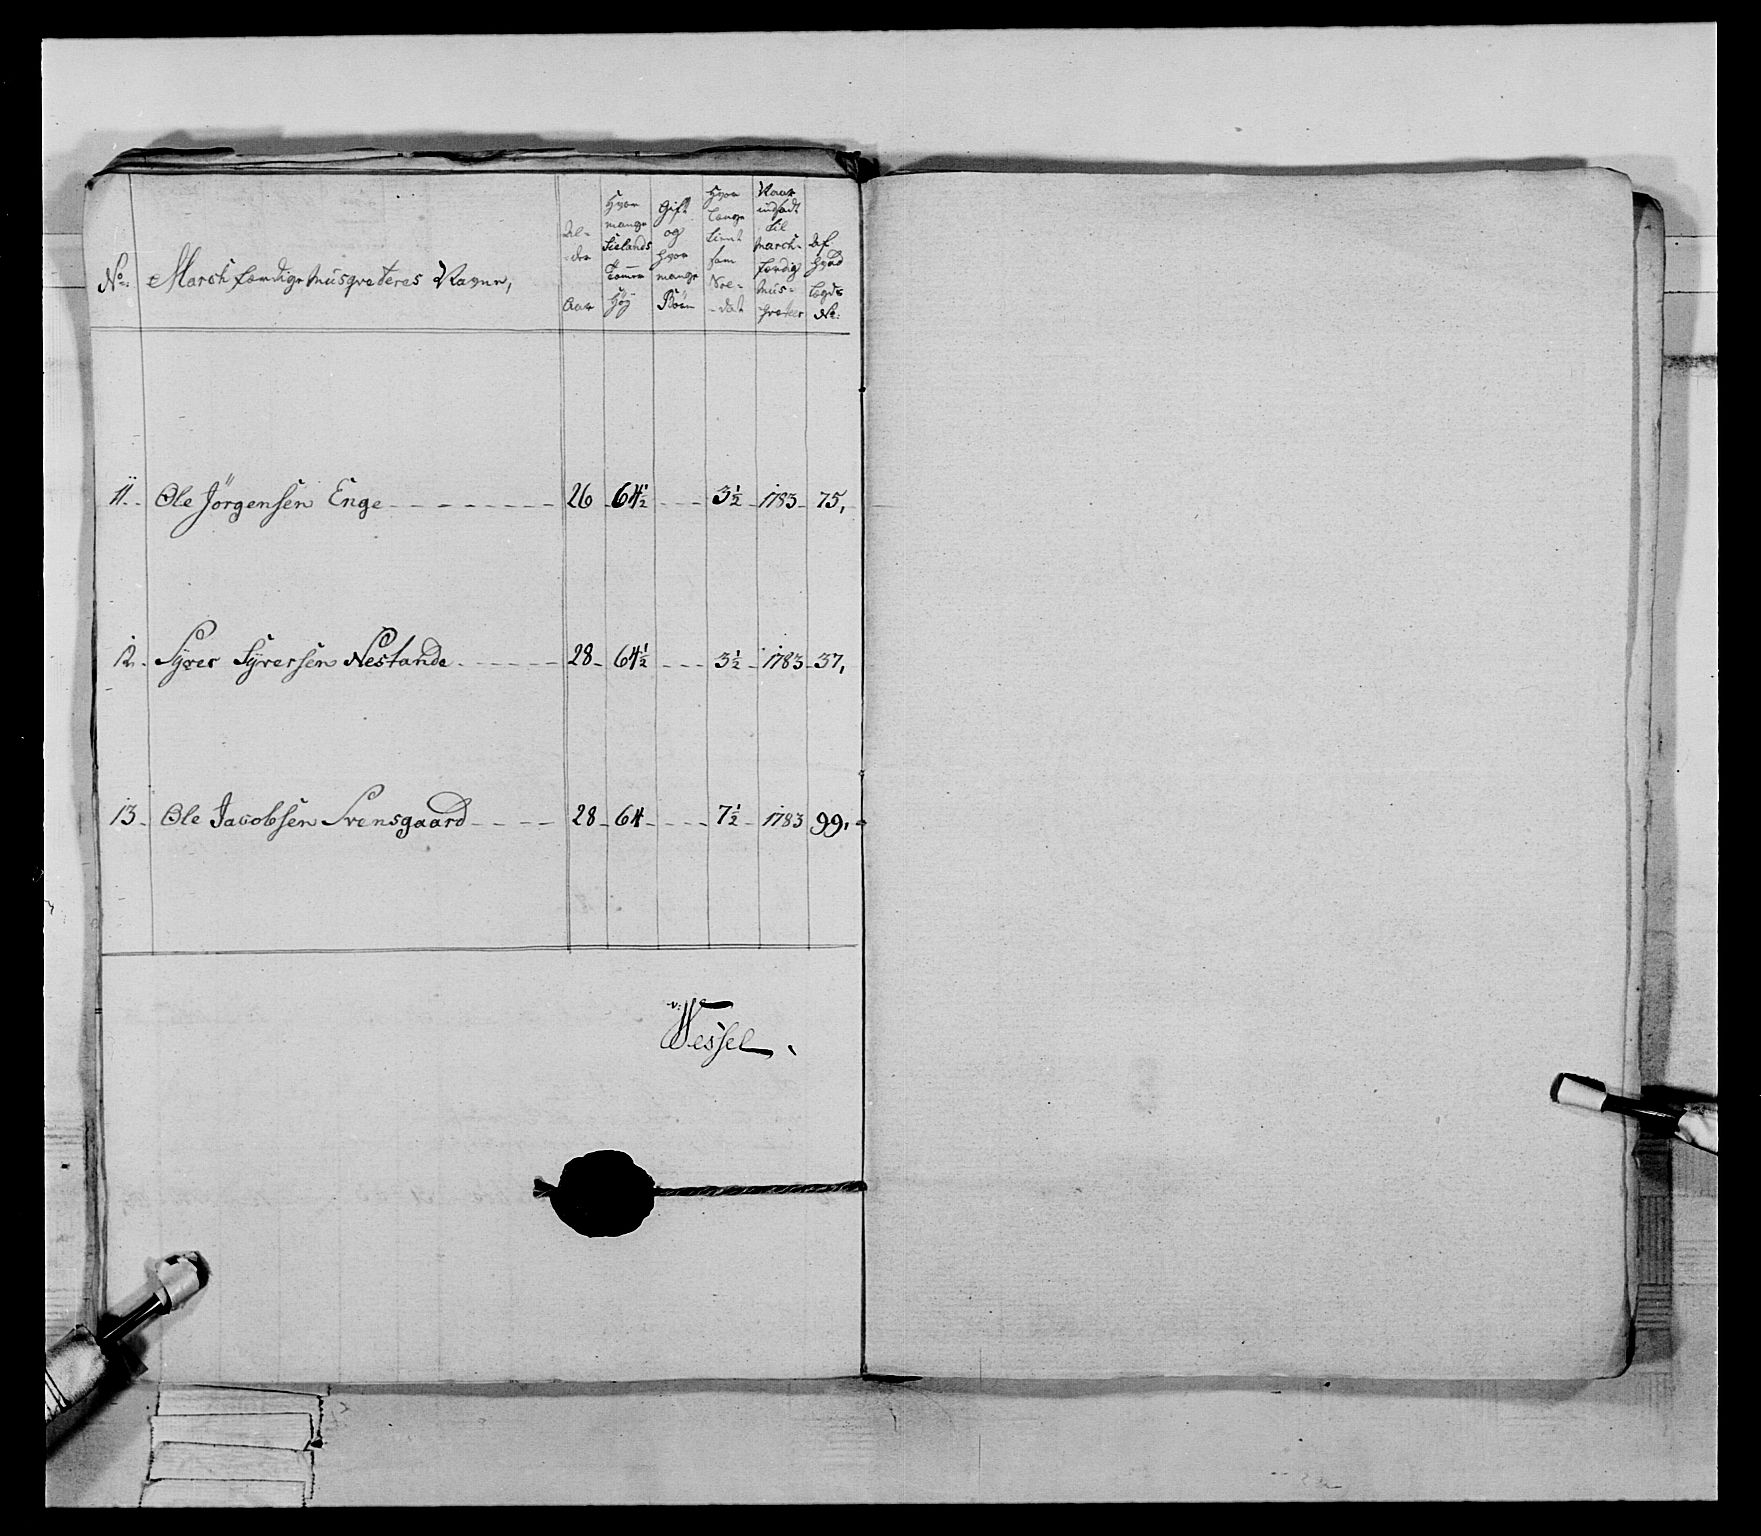 No: Marchfærdige Musqveteres Navne,
Al-
-der
Aar
Hvor
mange
Siælands
Tomer
Høy
Gift
og
hvor
mange
Børn
Hvor
længe
tient
som
Sol-
-dat
Naar
indsadt
til
March-
færdig
Mus-
Af
hvad
Lægds
No:
11. Ole Jörgensen Enge 26 64½ 3½ 1783 75,
12. Syver Syversen Nestande 28 64½ 3½ 1783 37,
13. Ole Jacobsen Svensgaard 28 64 7½ 1783 99,
Wessel